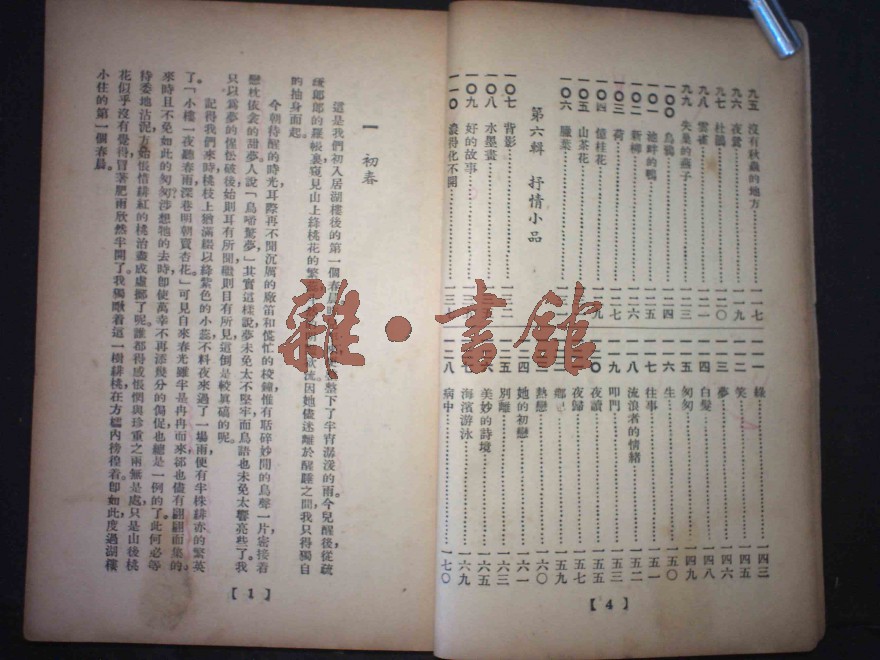 九五 沒有秋蟲的地方 一一七
九六 夜鶯 一一九
九七 杜鵑 一二〇
九八 雲雀 一二一
九九 失巢的燕子
一〇〇 烏鴉 一二四
一〇一 池畔的鴨 一二五
一〇二 新柳 一二六
一〇三 荷 一二七
一〇四 億桂花
一〇五 山茶花
一〇六 臘葉
第六輯 抒情小品
一〇七 背影
一〇八 水墨畫
一〇九 好的故事
一一〇 濃得化不開
一一一 綠 一四三
一一二 笑 一四五
一一三 夢 一四六
一一四 白髮 一四八
一一五 匆匆 一四九
一一六 生 一五〇
一一七 往事 一五一
一一八 流浪者的情緒 一五二
一一九 叩門 一五三
夜讀 一五五
夜歸 一五七
鄉 一五九
熱戀 一六〇
她的初戀 一六一
別離 一六三
美妙的詩境 一六五
海濱游泳 一六九
一二八 病中 一七〇
【4】
一 初春
這是我們初入居湖樓後的第一個春晨
整下了半宵潺湲的雨今兒醒後從疏
疏郎郎的羅帳裏窺見山上絳桃花的繁
因她儘迷離於醒睡之間我只得獨自
的抽身而起。
今朝待醒的時光耳際再不聞沉厲的廠笛和慌忙的校鐘惟有聒碎妙閒的鳥聲一片密接着
戀枕依衾的甜夢人說「鳥啼驚夢」其實這樣說夢未免太不堅牢而鳥語也未免太響亮些了。我
只以爲夢的惺忪破後始則耳有所聞繼則目有所見這倒是較眞確的呢。
記得我們來時桃枝上猶滿綴以絳紫色的小蕊不料夜來過了一場雨便有半株緋赤的繁英
了。「小樓一夜聽春雨深巷明朝賣杏花」可見自來春光雖半是冉冉而來卻也儘有翩翩而集的。
來時且不免如此的匆匆涉想牠的去時即使萬幸不再添幾分的侷促也總是一例的了此何必等
待委地沾泥方始悵惜緋紅的桃冶盡成虛擲了呢誰都得感悵惘與珍重之兩無是處只是山後桃
花似乎沒有覺得冒著肥雨欣然半開了我獨瞅着這一樹緋桃在方纔內徬徨着即如此度過湖樓
小住的第一個春晨。
【1】
雜·書館